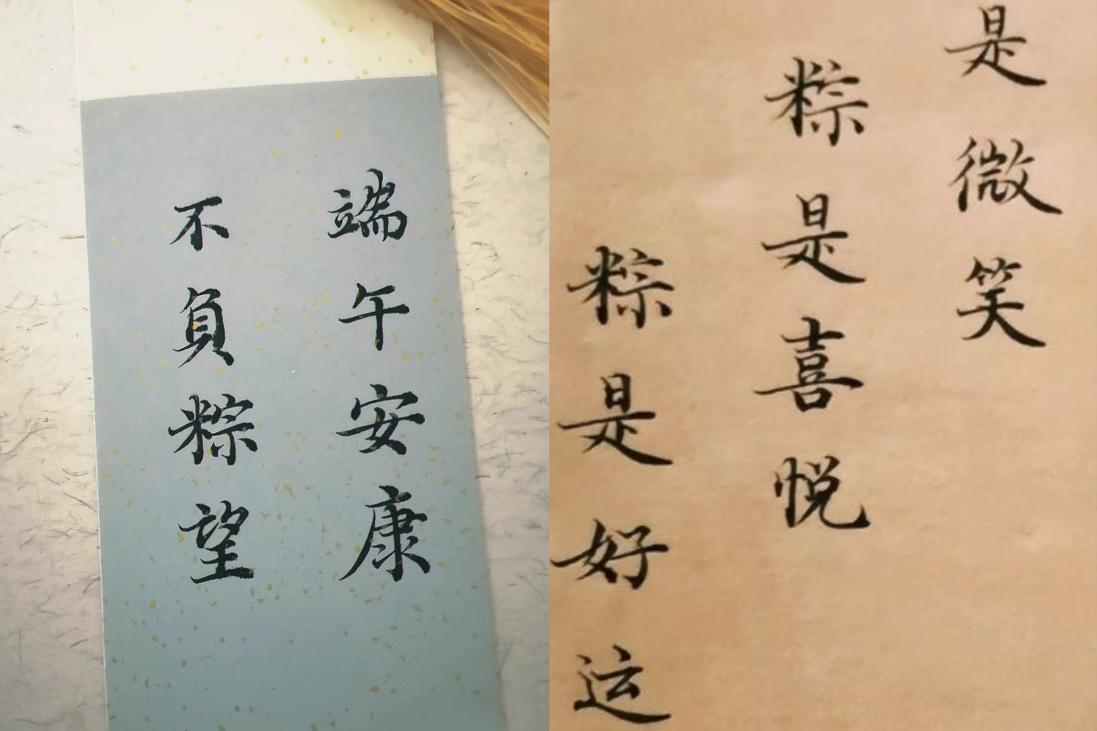 端午安康
不負粽望
是微笑
粽是喜悦
粽是好运